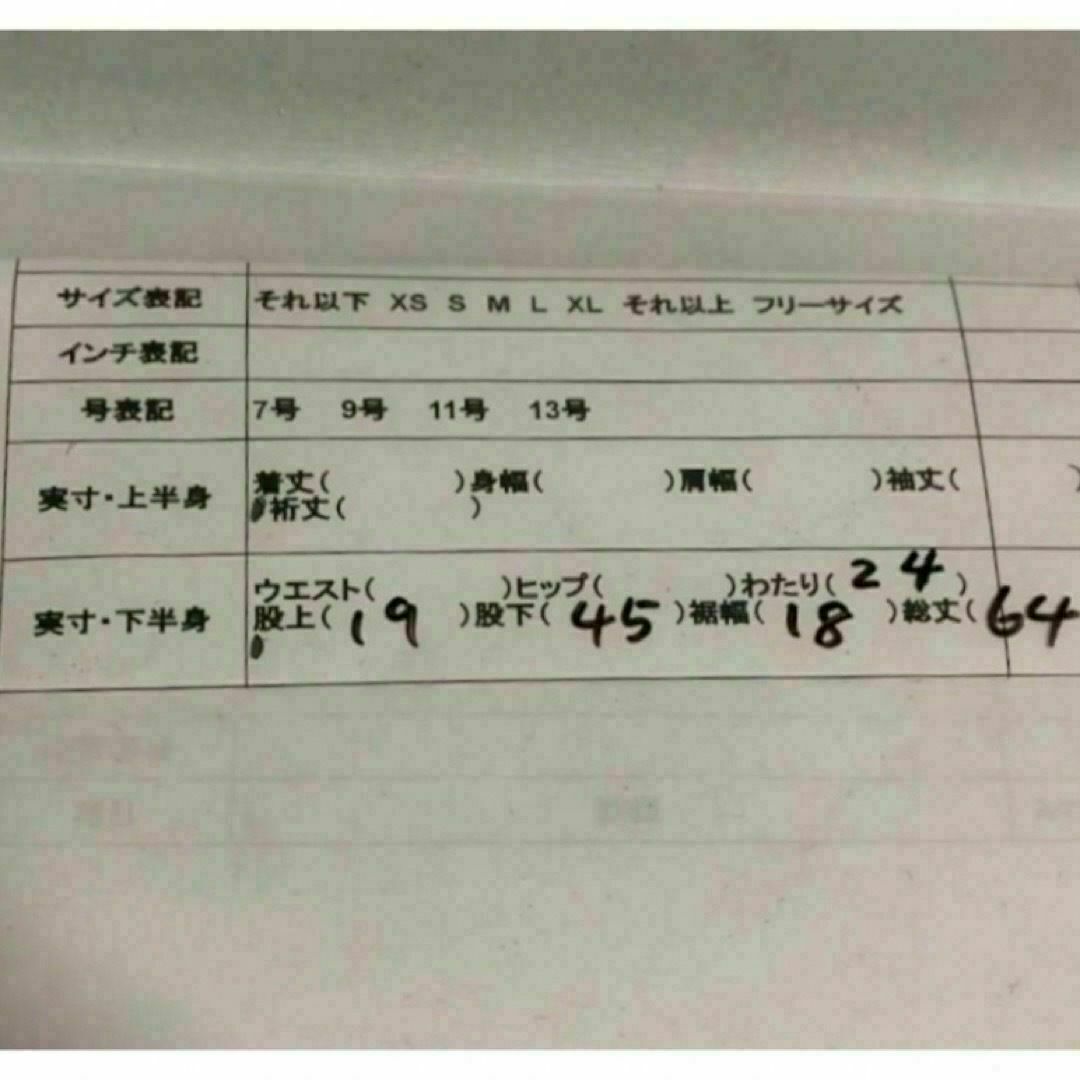 サイズ表記 それ以下 XS S M L XL それ以上 フリーサイズ
インチ表記
号表記 7号 9号 11号 13号
実寸・上半身 着丈( )身幅( )肩幅( )袖丈( )
裄丈( )
実寸・下半身 ウエスト( )ヒップ( )わたり( 24 )
股上( 19 )股下( 45 )裾幅( 18 )総丈( 64